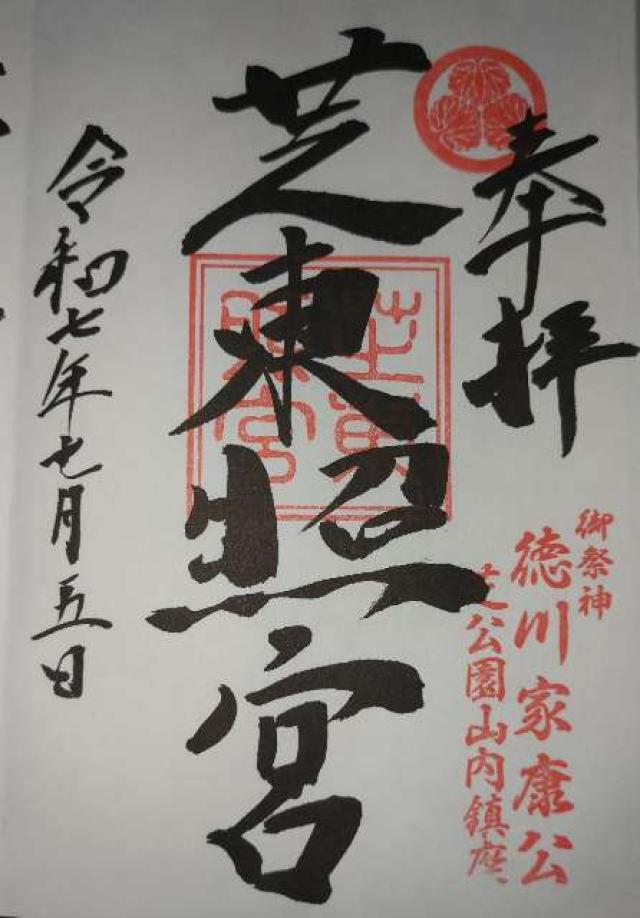 奉拝
御祭神
徳川家康公
芝公園山内鎮座
芝東照宮
芝東
照宮
令和七年七月五日